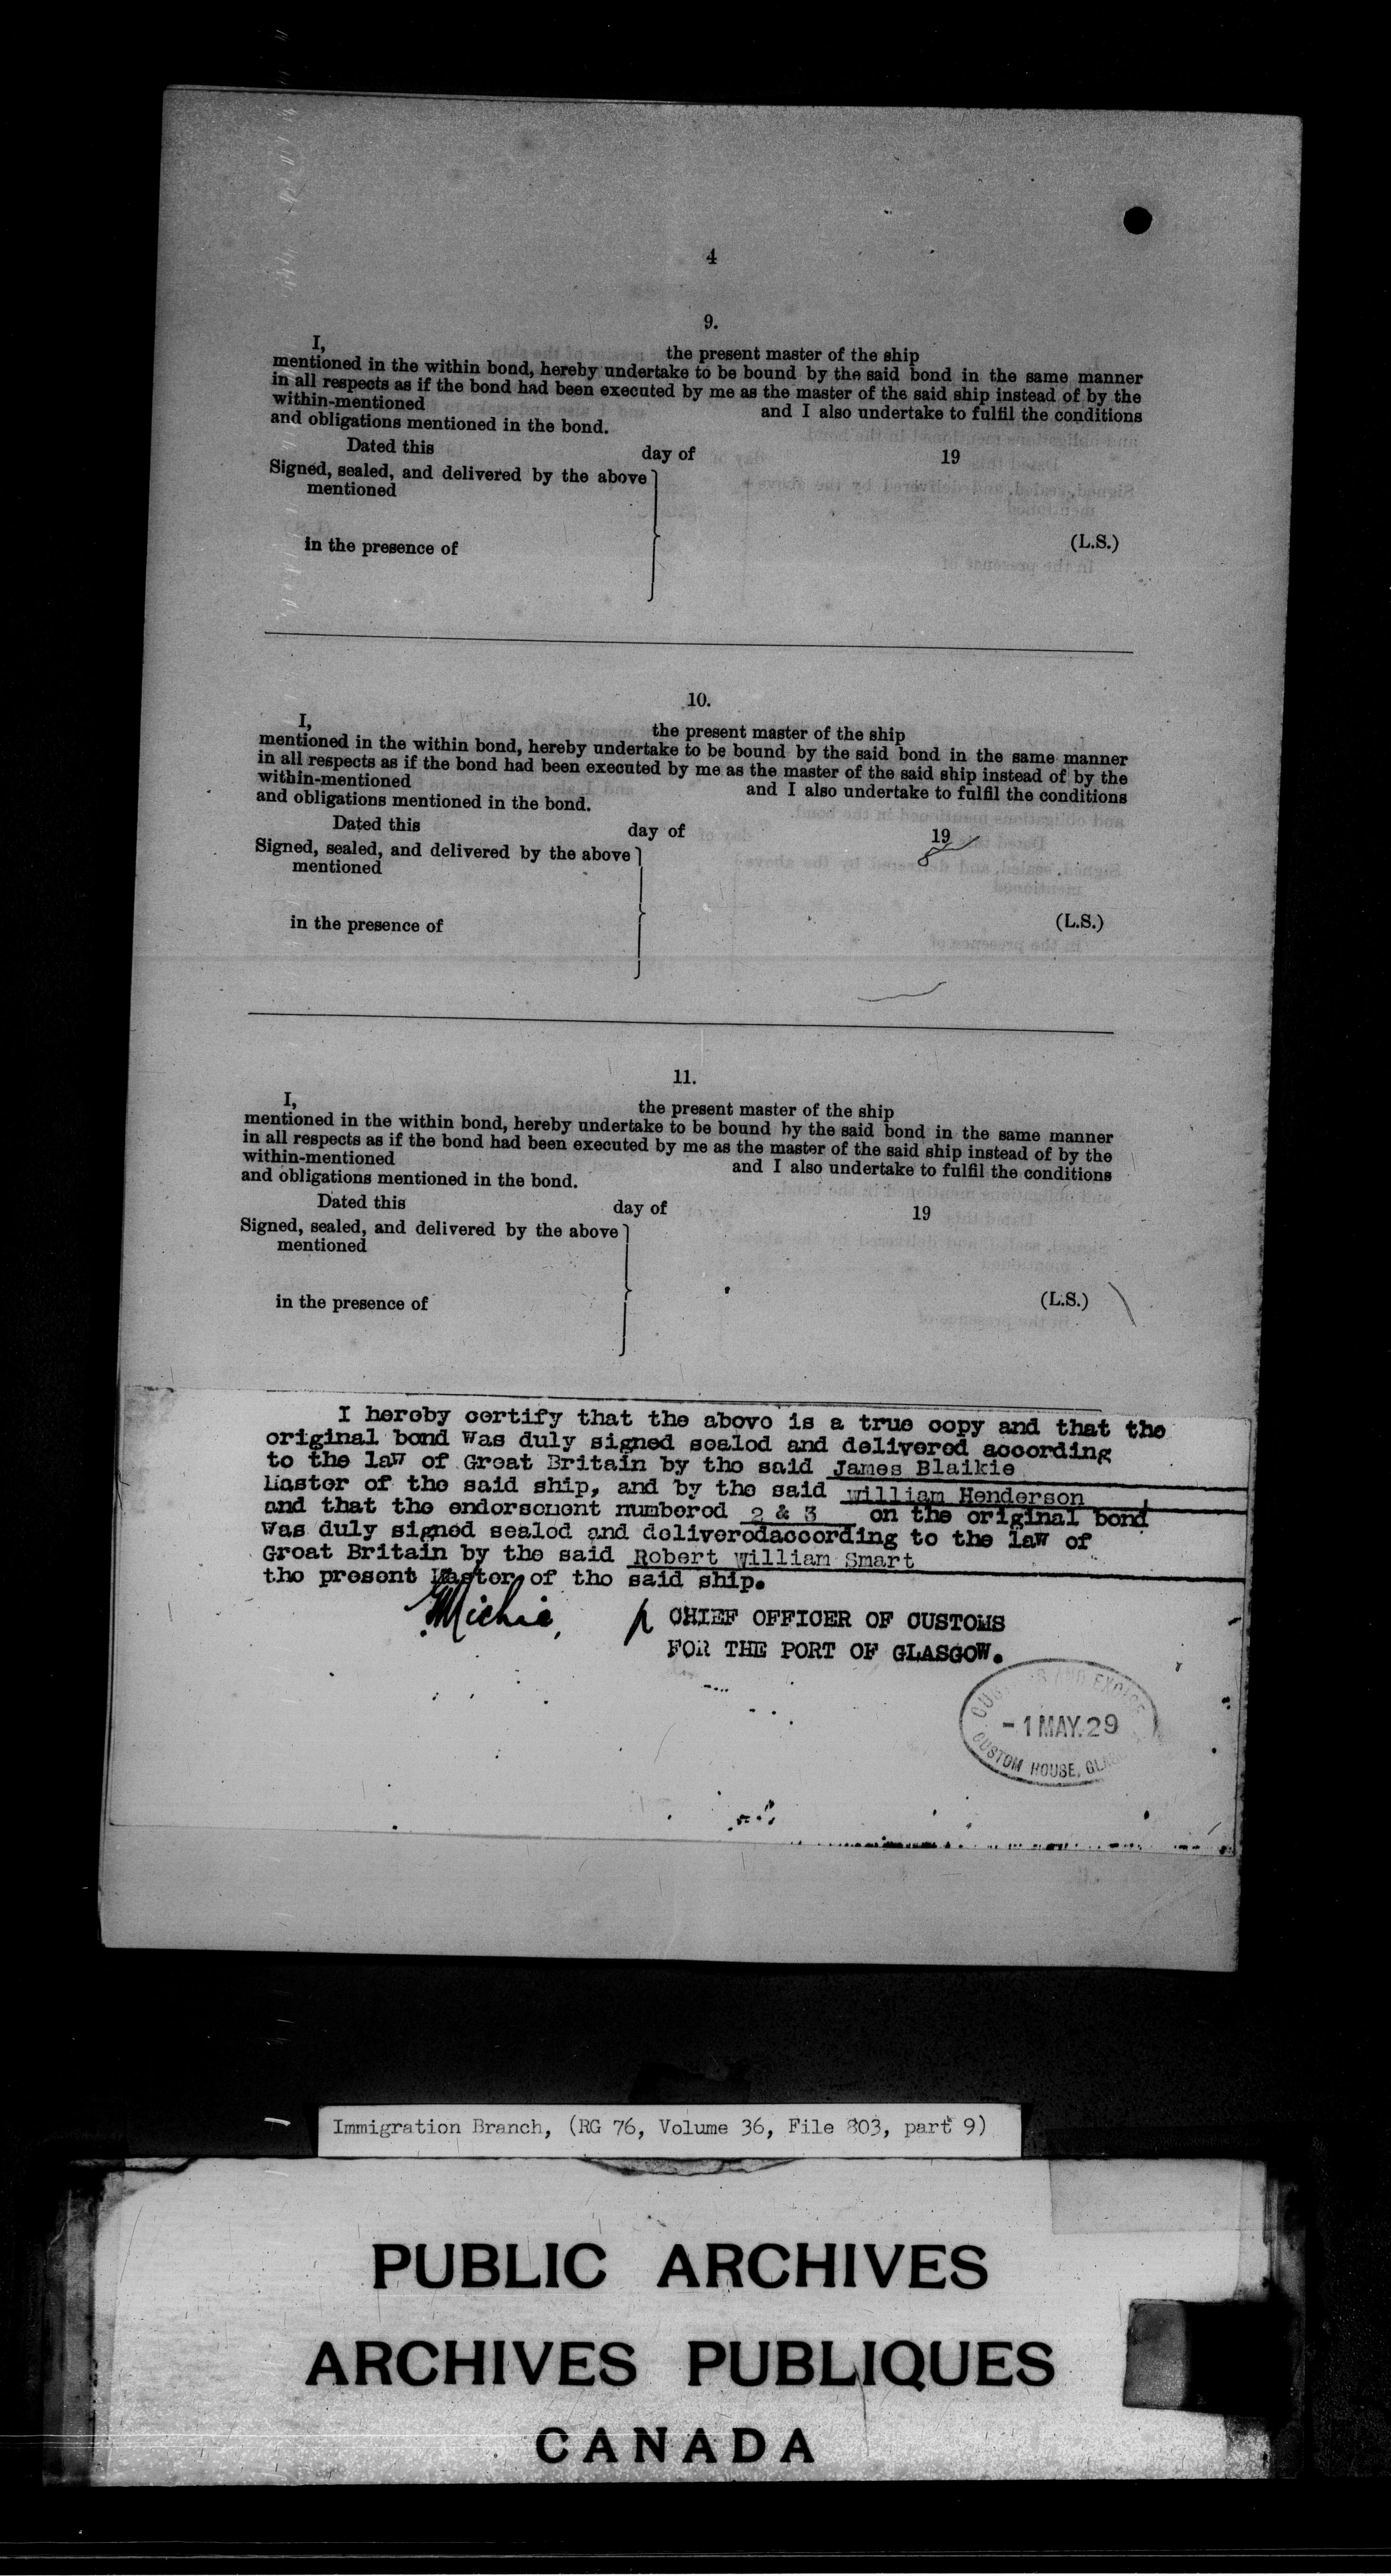 4
9.
I, the present master of the ship
mentioned in the within bond, hereby undertake to be bound by the said bond in the same manner
in all respects as if the bond had been executed by me as the master of the said ship instead of by the
within-mentioned and I also undertake to fulfil the conditions
and obligations mentioned in the bond.
Dated this day of 19
Signed, sealed, and delivered by the above
mentioned
in the presence of (L.S.)
10.
I, the present master of the ship
mentioned in the within bond, hereby undertake to be bound by the said bond in the same manner
in all respects as if the bond had been executed by me as the master of the said ship instead of by the
within-mentioned and I also undertake to fulfil the conditions
and obligations mentioned in the bond.
Dated this day of 19
Signed, sealed, and delivered by the above
mentioned
in the presence of (L.S.)
11.
I, the present master of the ship
mentioned in the within bond, hereby undertake to be bound by the said bond in the same manner
in all respects as if the bond had been executed by me as the master of the said ship instead of by the
within-mentioned and I also undertake to fulfil the conditions
and obligations mentioned in the bond.
Dated this day of 19
Signed, sealed, and delivered by the above
mentioned
in the presence of (L.S.)
I hereby certify that the above is a true copy and that the
original bond was duly signed sealed and delivered according
to the law of Great Britain by the said James Blaikie
Master of the said ship, and by the said William Henderson
and that the endorsement numbered 2 & 3 on the original bond
was duly signed sealed and deliveredaccording to the law of
Great Britain by the said Robert William Smart
the present Master of the said ship.
Michie, p CHIEF OFFICER OF CUSTOMS
FOR THE PORT OF GLASGOW.
CUSTOMS AND EXCISE
-1 MAY.29
CUSTOM HOUSE, GLASGOW
Immigration Branch, (RG 76, Volume 36, File 803, part 9)
PUBLIC ARCHIVES
ARCHIVES PUBLIQUES
CANADA